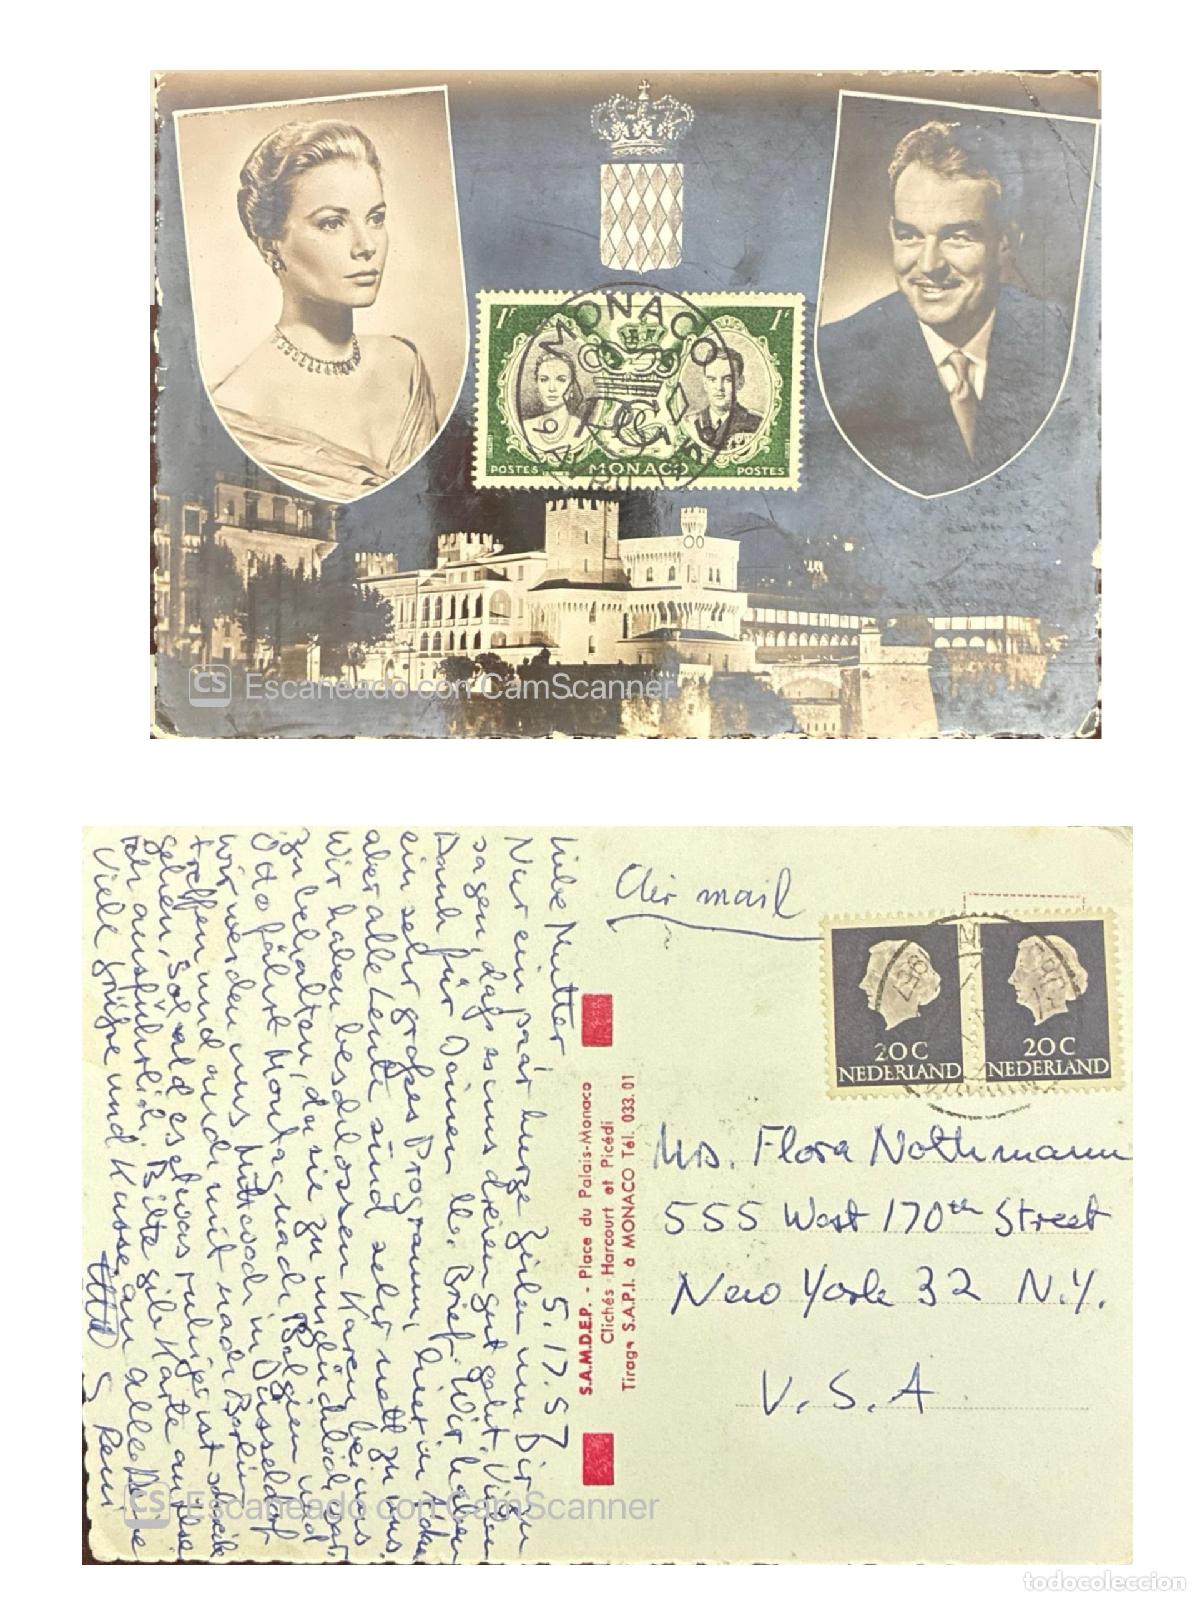 1F
1F
MONACO
19 AVRIL 56
POSTES
MONACO
POSTES
CS Escaneado con CamScanner
Air mail
20 C
NEDERLAND
20 C
NEDERLAND
Mrs. Flora Nothmann
555 West 170th Street
New York 32 N.Y.
U.S.A
S.A.M.D.E.P. - Place du Palais-Monaco
Clichés Harcourt et Picédi
Tirage S.A.P.I. à MONACO Tél. 033.01
5.17.57
Liebe Mutter
Nur ein paar kurze Zeilen um Dir zu
sagen, dass es uns dreien gut geht. Vielen
Dank für Deinen lb. Brief. Wir haben
ein sehr grosses Programm, hier in
aber alle Leute sind sehr nett zu uns.
Wir haben beschlossen Karen bei uns
zu behalten, da sie zu unglücklich war.
Otto fährt Montag nach Belgien und
wir werden uns Mittwoch in Düsseldorf
treffen und auch mit nach Berlin
gehen. Sobald es etwas ruhiger ist schreibe
ich ausführlich. Bitte gib Karte an
Viele Grüsse und Küsse an alle Deine
CS Escaneado con CamScanner
todocoleccion